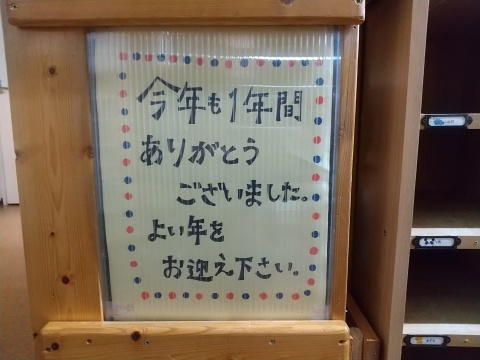 今年も1年間
ありがとう
ございました。
よい年を
お迎え下さい。